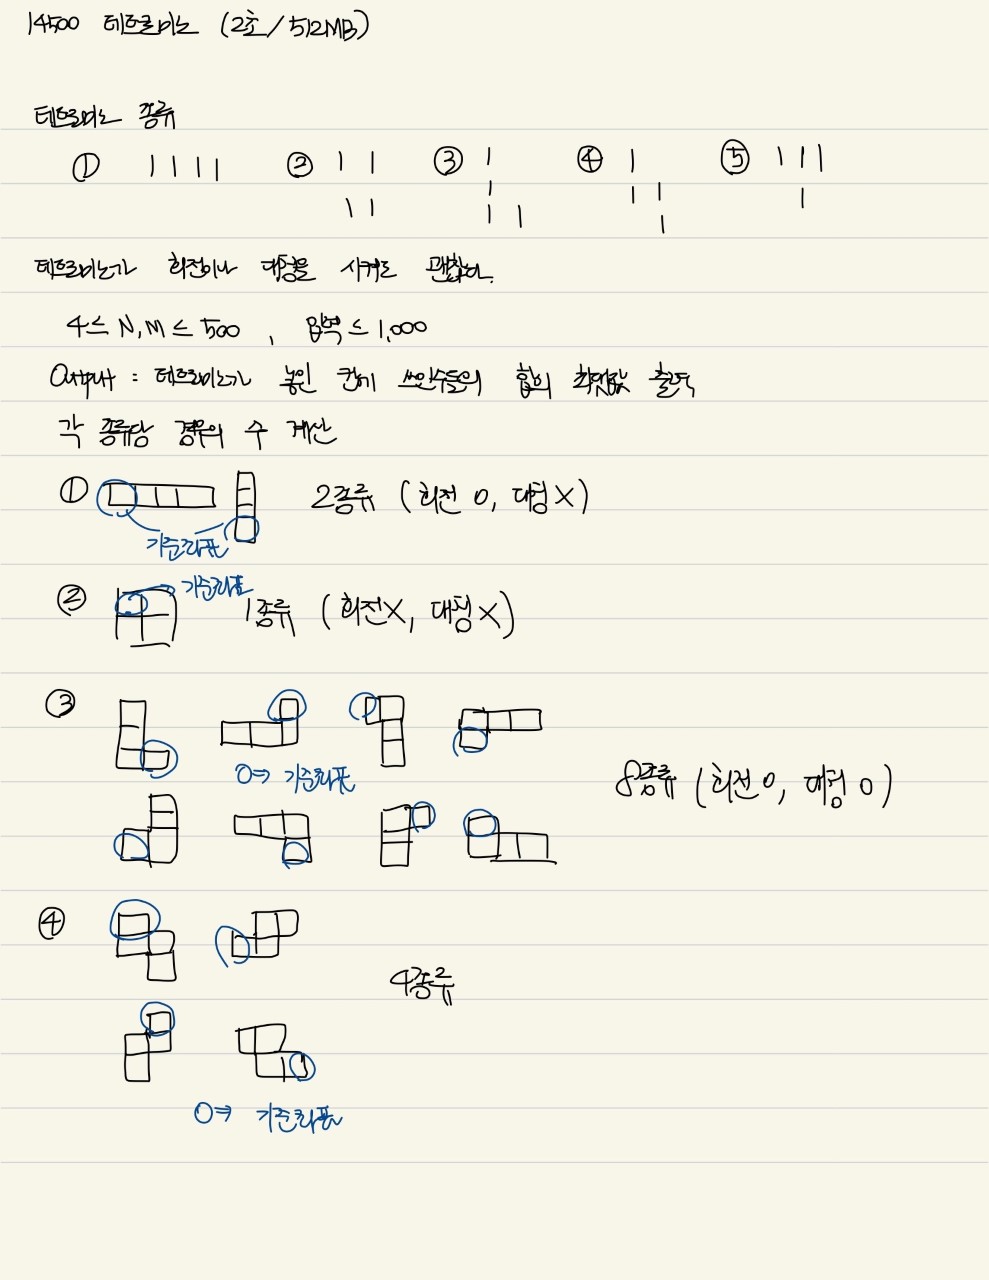 14500 테트로미노 (2초/512MB)
테트로미노 종류
① 1 1 1 1 ② 1 1 ③ 1 ④ 1 ⑤ 1 1 1
1 1 1 1 1 1
1 1 1
테트로미노가 회전이나 대칭을 시켜도 괜찮다.
4 ≤ N, M ≤ 500 , 입력 ≤ 1,000
Output : 테트로미노가 놓인 칸에 쓰인 수들의 합의 최댓값 출력
각 종류당 경우의 수 계산
① 2종류 (회전 O, 대칭 X)
기준좌표
② 기준좌표 1종류 (회전X, 대칭 X)
③
O⇒ 기준좌표
8종류 (회전 O, 대칭 O)
④
4종류
O⇒ 기준좌표